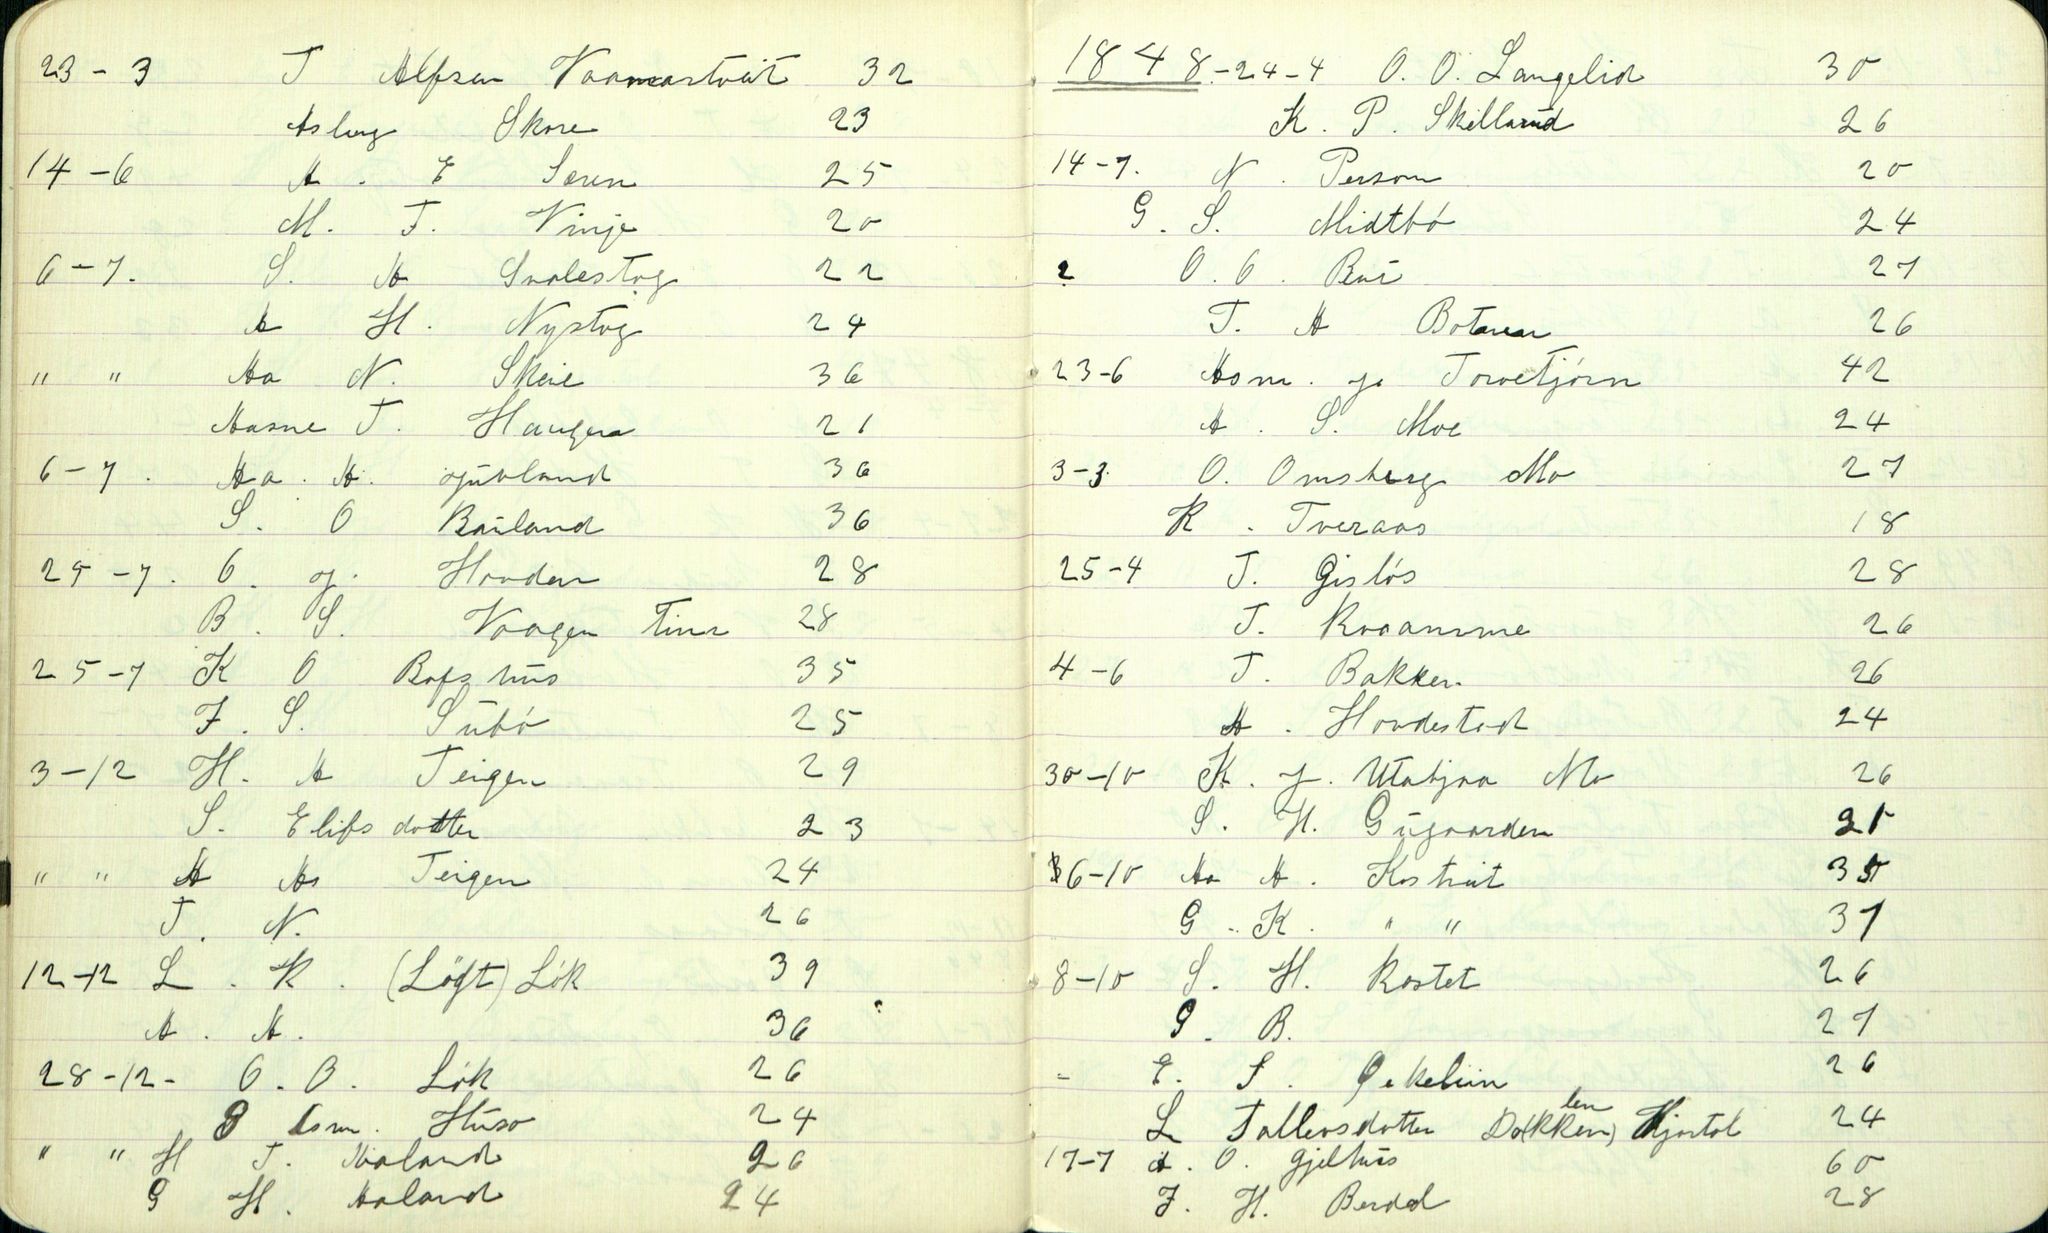 23 - 3 T Alfsen Vaamartveit 32
Asberg Skore 23
14 - 6 A. E Særen 25
M. T. Vinje 20
6 - 7. S. A Svalestog 22
A H. Nystog 24
" " Aa N. Skeie 36
Aasne T. Haugen 21
6 - 7. Aa. A. Juvland 36
S. O Bøiland 36
29 - 7. O. J. Hovden 28
B. S. Vaagen Tinn 28
25 - 7 K O 35
F. S. Subö 25
3 - 12 H. A Teigen 29
S. Elifsdotter 23
" " A As Teigen 24
T. N. 26
12 - 12 L. K. (Löft) Lök 39
A. A. 36
28 - 12 - O. O. Lök 26
G Asm. Huso 24
" " H T. Aaland 26
G H. Aaland 24
1848 - 24 - 4 O. O. Langelid 30
K. P. Skilland 26
14 - 7. N. Person 20
G. S. Midtbö 24
2 O. O. 27
T. A Botnen 26
23 - 6 Asm. J. Torvetjörn 42
A. S. Moe 24
3 - 3 O. Omsberg Mo 27
K. Tveraas 18
25 - 4 T. Gislös 28
T. Kvaamme 26
4 - 6 T. Bakken 26
A. Hovdestad 24
30 - 10 K. J. Utabjaa Mo 26
S. H. Gugaarden 25
6 - 10 Aa A. Kostveit 35
G. K. " " 37
8 - 10 S. H. Rostet 26
G. B. 27
- E. S. 26
L Tallevsdotter Do(kken) len Hjartdal 24
17 - 7 A. O. Gjelhus 60
F. H. Berdal 28